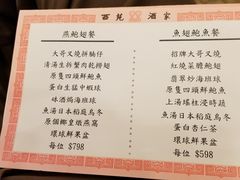 西苑酒家
燕鮑翅餐
大哥叉燒拼腩仔
清湯生拆蟹肉乾撈翅
原隻四頭鮮鮑魚
蛋白生龍中蝦球
味酒焗海班球
魚湯日本稻庭烏冬
原個椰皇燉燕窩
環球鮮果盆
每位 $798
魚翅鮑魚餐
招牌大哥叉燒
紅燒菜膽鮑翅
翡翠炒海班球
原隻四頭鮮鮑魚
上湯煀柱浸時蔬
魚湯日本稻庭烏冬
蛋白杏仁茶
環球鮮果盆
每位 $598